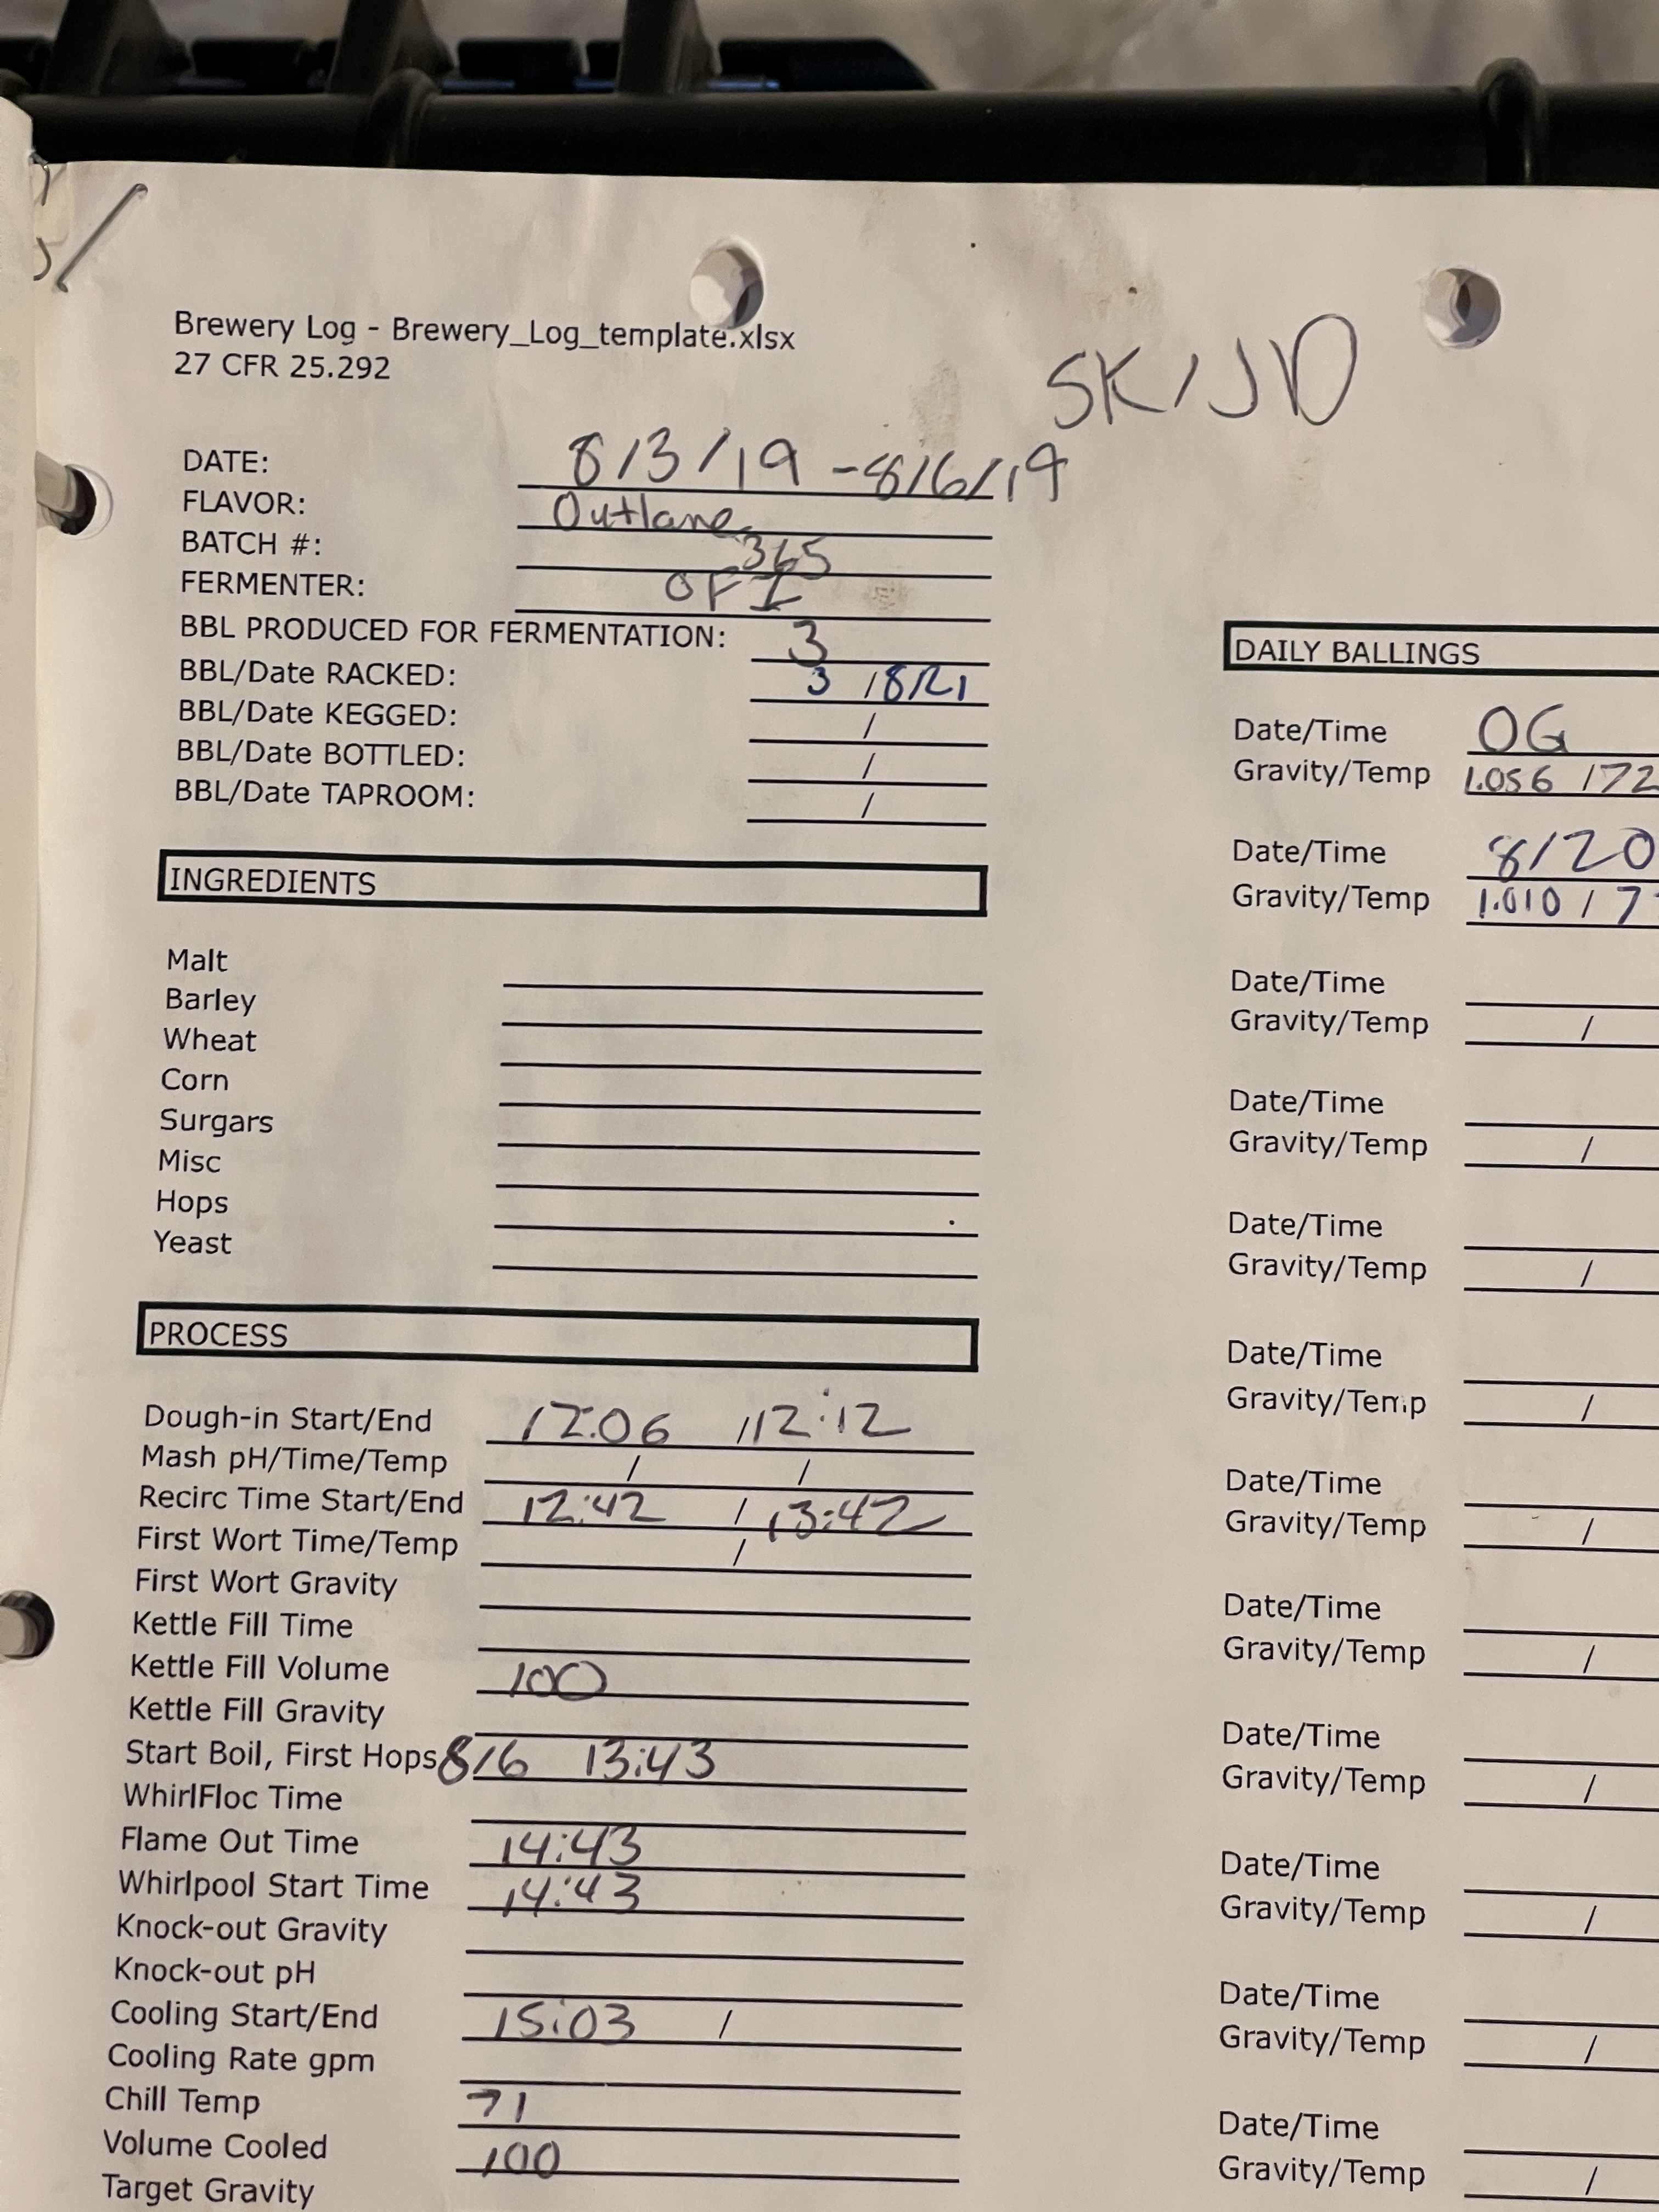 Brewery Log - Brewery_Log_template.xlsx
27 CFR 25.292
SK/JD
DATE: 8/3/19 - 8/6/19
FLAVOR: Outlane
BATCH #: 365
FERMENTER: OF1
BBL PRODUCED FOR FERMENTATION: 3
BBL/Date RACKED: 3 / 8/21
BBL/Date KEGGED: /
BBL/Date BOTTLED: /
BBL/Date TAPROOM: /
INGREDIENTS
Malt
Barley
Wheat
Corn
Surgars
Misc
Hops
Yeast
PROCESS
Dough-in Start/End 12:06 / 12:12
Mash pH/Time/Temp / /
Recirc Time Start/End 12:42 / 13:42
First Wort Time/Temp /
First Wort Gravity
Kettle Fill Time
Kettle Fill Volume 100
Kettle Fill Gravity
Start Boil, First Hops 8/6 13:43
WhirlFloc Time
Flame Out Time 14:43
Whirlpool Start Time 14:43
Knock-out Gravity
Knock-out pH
Cooling Start/End 15:03 /
Cooling Rate gpm
Chill Temp 71
Volume Cooled 100
Target Gravity
DAILY BALLINGS
Date/Time OG
Gravity/Temp 1.056 / 72
Date/Time 8/20
Gravity/Temp 1.010 / 7
Date/Time
Gravity/Temp /
Date/Time
Gravity/Temp /
Date/Time
Gravity/Temp /
Date/Time
Gravity/Temp /
Date/Time
Gravity/Temp /
Date/Time
Gravity/Temp /
Date/Time
Gravity/Temp /
Date/Time
Gravity/Temp /
Date/Time
Gravity/Temp /
Date/Time
Gravity/Temp /